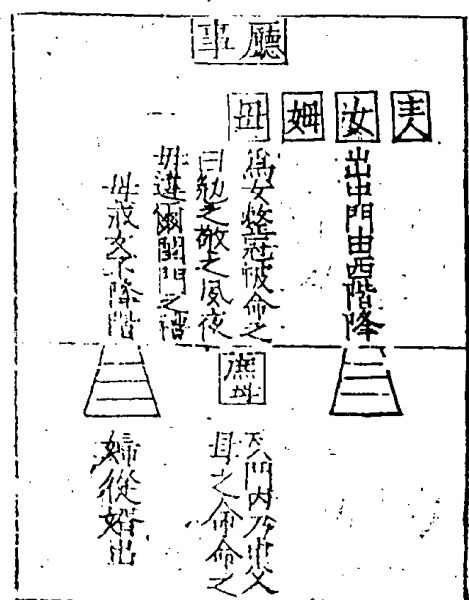 廳事
主人
女
姆
母
出中門由西階降
爲女整冠帔命之
曰勉之敬之夙夜
毋違爾閨門之禮
母戒女不降階
庶母
至門內乃申父
母之命命之
婦從婿出